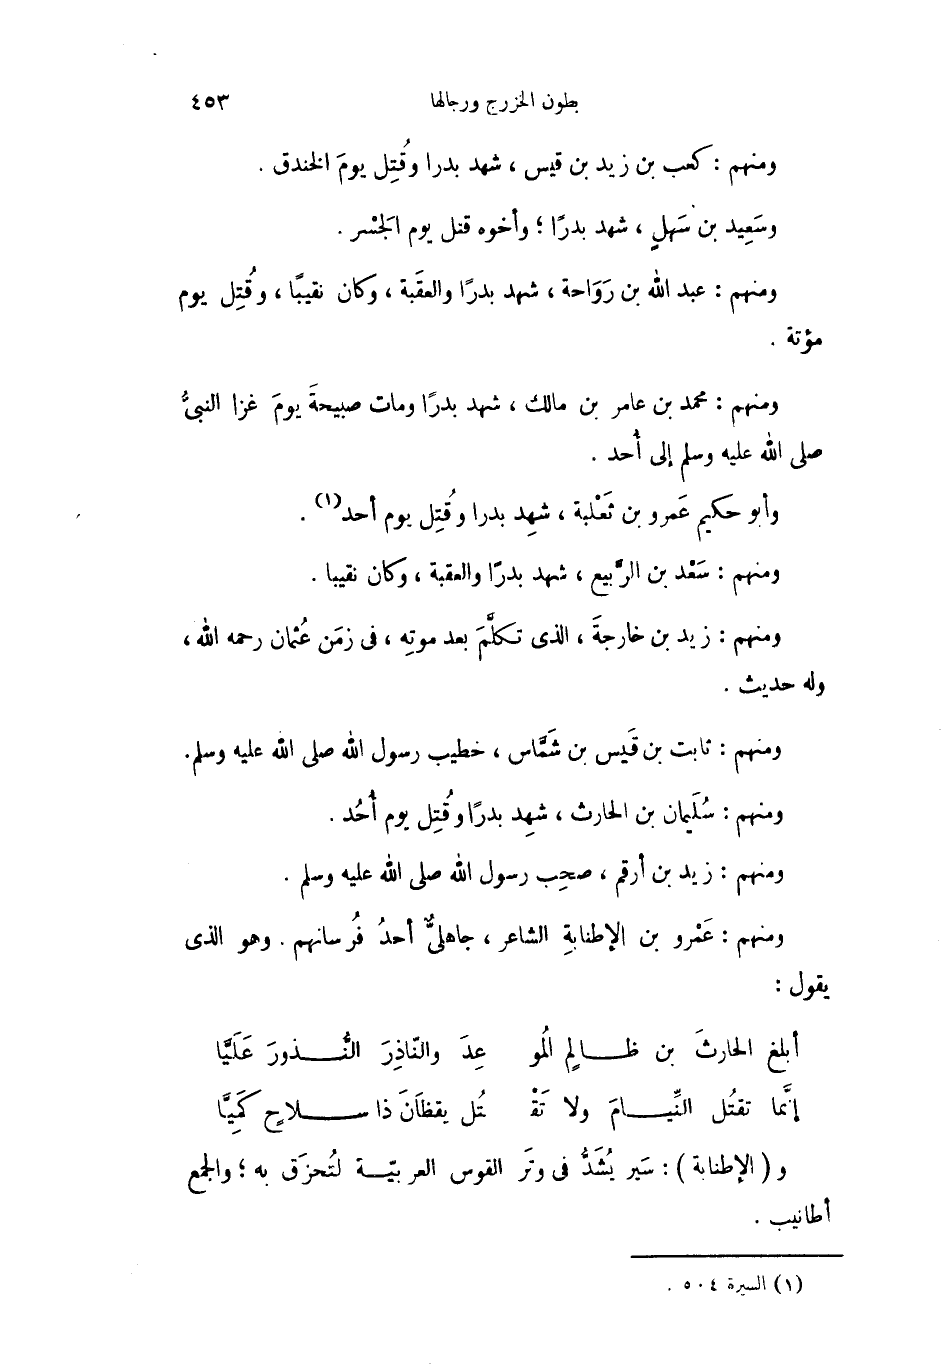 بطون الخزرج ورجالها ٤٥٣
ومنهم : كعب بن زيد بن قيس ، شهد بدرا وقُتِل يومَ الخندق .
وسَعِيد بن سَهلٍ ، شهد بدرًا ؛ وأخوه قتل يوم الجَسْر .
ومنهم : عبد الله بن رَوَاحة ، شهد بدرًا والعقَبة ، وكان نقيبًا ، وقُتِل يوم
مؤتة .
ومنهم : محمد بن عامر بن مالك ، شهد بدرًا ومات صبيحةَ يومَ غزا النبىُّ
صلى الله عليه وسلم إلى أُحد .
وأبو حكيم عَمرو بن ثَعْلبة ، شهِد بدرا وقُتِل يوم أحد(١) .
ومنهم : سَعْد بن الرَّبيع ، شهد بدرًا والعقبة ، وكان نقيبا .
ومنهم : زيد بن خارجةَ ، الذى تكلَّمَ بعد موتِه ، فى زمَن عُثمان رحمه الله ،
وله حديث .
ومنهم : ثابت بن قَيس بن شَمَّاس ، خطيب رسول الله صلى الله عليه وسلم.
ومنهم : سُلَيمان بن الحارث ، شهِد بدرًا وقُتِل يوم أُحُد .
ومنهم : زيد بن أرقم ، صحِب رسول الله صلى الله عليه وسلم .
ومنهم : عَمْرو بن الإطنابةِ الشاعر ، جاهلىٌّ أحدُ فُرسانهم . وهو الذى
يقول :
أبلغ الحارثَ بن ظالمِ المُو عِدَ والنّاذِرَ النُّذورَ عَلَيَّا
إنَّما تقتُل النِّيامَ ولا تَقْ تُل يقظانَ ذا سلاحٍ كَمِيَّا
و ( الإطنابة ) : سَير يُشَدُّ فى وتَر القوس العربيّة لتُحزَق به ؛ والجمع
أطانيب .
(١) السيرة ٥٠٤ .